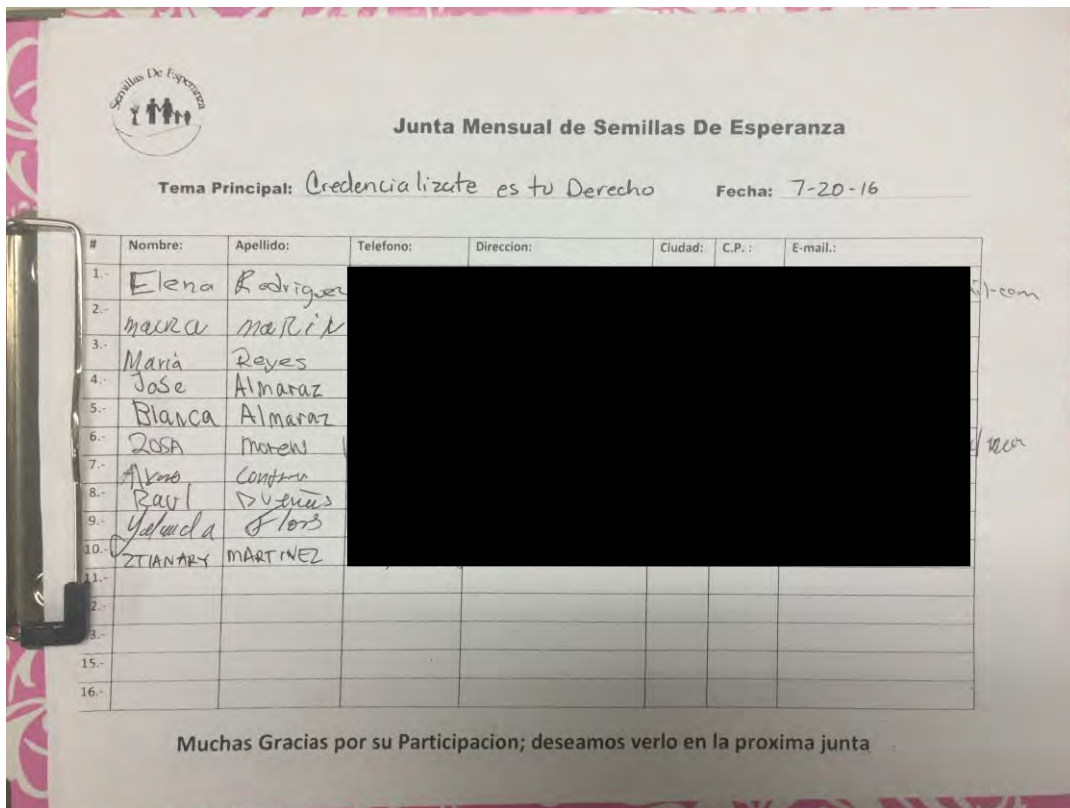 Semillas De Esperanza
Junta Mensual de Semillas De Esperanza
Tema Principal: Credencialízate es tu Derecho Fecha: 7-20-16
# Nombre: Apellido: Telefono: Direccion: Ciudad: C.P. : E-mail.:
1.- Elena Rodriguez il-com
2.- maura maRiN
3.- Maria Reyes
4.- Jose Almaraz
5.- Blanca Almaraz
6.- ROSA
7.-
8.- Raul Dueñas
9.- Yolanda
10.- ZTIANARY MARTINEZ
11.-
2.-
3.-
15.-
16.-
Muchas Gracias por su Participacion; deseamos verlo en la proxima junta